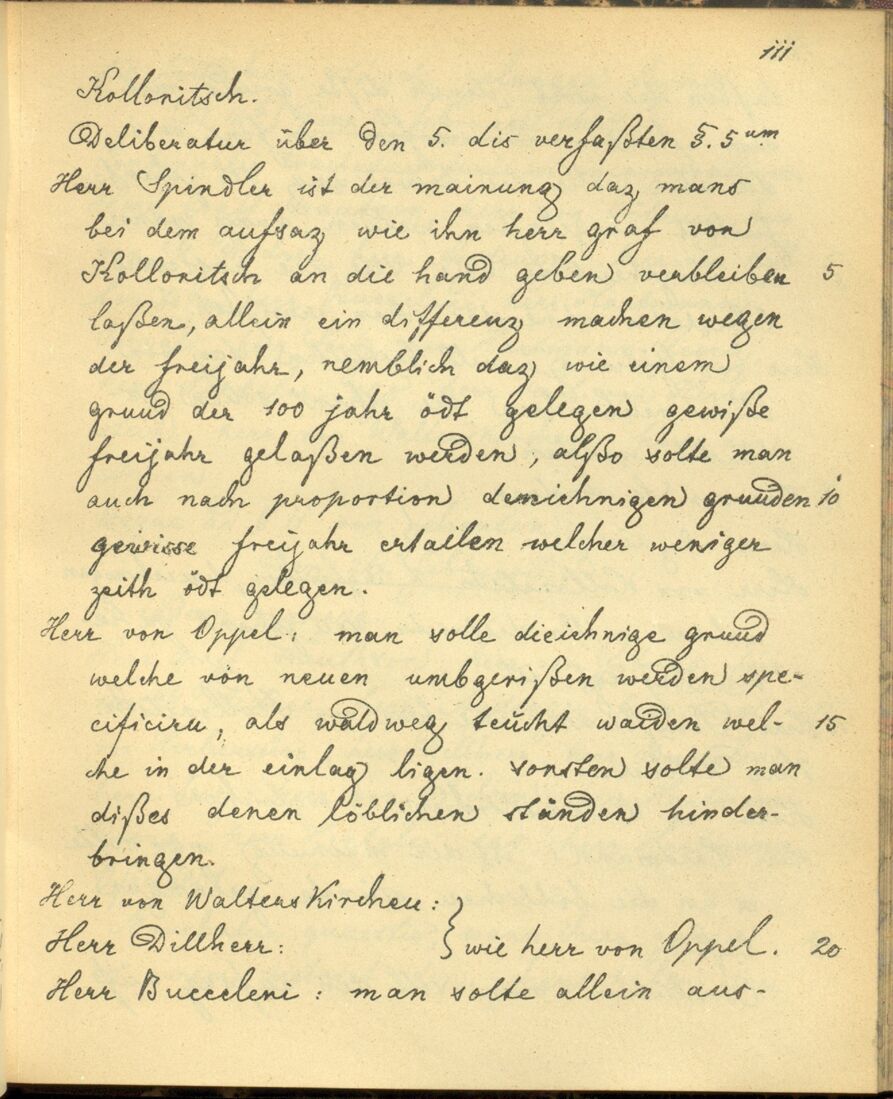 iii
Kollonitsch.
Deliberatur über den 5. dis verfaßten §. 5um
Herr Spindler ist der mainung daz mans
bei dem aufsaz wie ihn herr graf von
Kollonitsch an die hand geben verbleiben 5
laßen, allein ein differenz machen wegen
der freijahr, nemblich daz wie einem
grund der 100 jahr ödt gelegen gewiße
freijahr gelaßen werden, alßo solte man
auch nach proportion denichnigen grunden 10
gewisse freijahr ertailen welcher weniger
zeith ödt gelegen.
Herr von Oppel: man solle dieichnige grund
welche von neuen umbgerißen werden spe-
cificirn, als waldweg teücht waiden wel- 15
che in der einlag ligen. sonsten solte man
dißes denen löblichen ständen hinder-
bringen.
Herr von Walterskirchen:
Herr Dillherr: } wie herr von Oppel. 20
Herr Bucceleni: man solte allein aus-